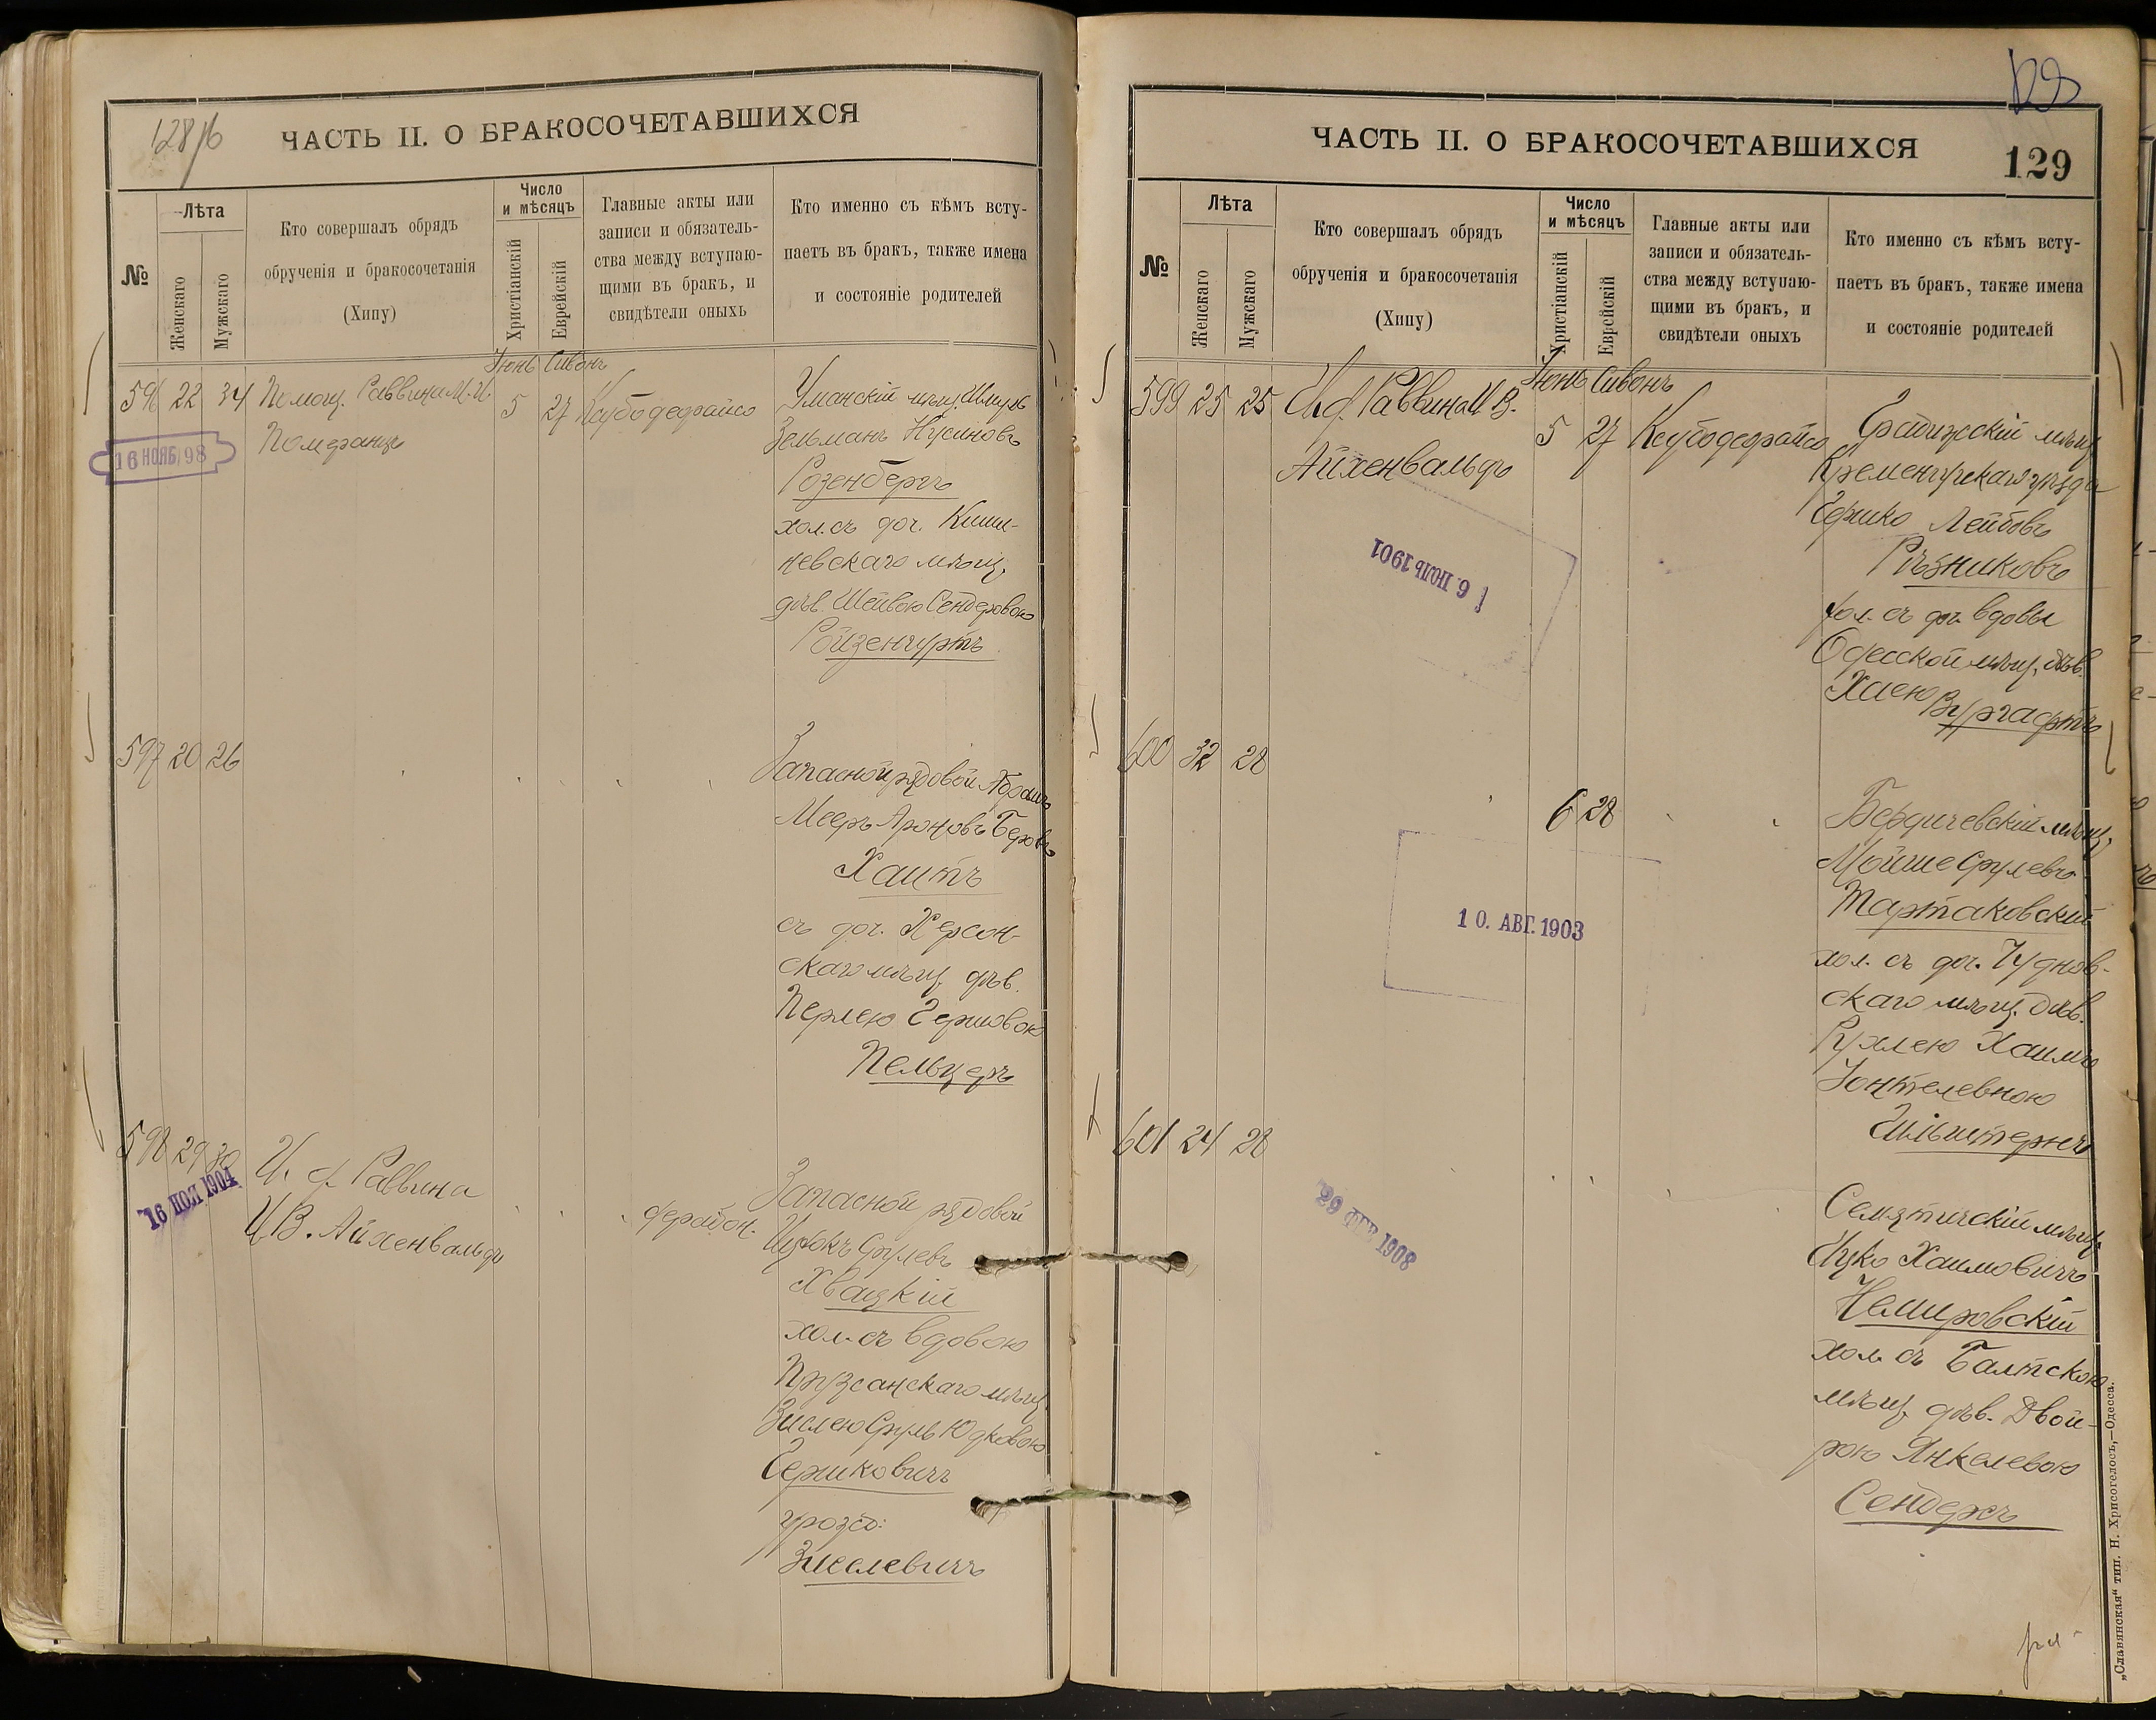 128/б
ЧАСТЬ II. О БРАКОСОЧЕТАВШИХСЯ
№
Лѣта
Женскаго
Мужскаго
Кто совершалъ обрядъ
обрученія и бракосочетанія
(Хипу)
Число
и мѣсяцъ
Христіанскій
Еврейскій
Главные акты или
записи и обязатель-
ства между вступаю-
щими въ бракъ, и
свидѣтели оныхъ
Кто именно съ кѣмъ всту-
паетъ въ бракъ, также имена
и состояніе родителей
Іюнь Сивонъ
596 22 34 Помощ. Раввина М. И.
Померанцъ
5 27 Ксубодерайсо
16 НОЯБ 98
Уманскій мѣщ. Шмуль
Зельманъ Нусиновъ
Розенбергъ
хол. съ доч. Киши-
невскаго мѣщ.
дѣв. Шейвою Сендеровою
Ройзенгуртъ
597 20 26
Запасной рядовой Абрамъ
Мееръ Ароновъ Беровъ
Хаитъ
съ доч. Херсон-
скаго мѣщ. дѣв.
Перлею Гершовою
Пельцеръ
598 29 30 И. д. Раввина
И. В. Айхенвальдъ
16 1904
дерабон.
Запасной рядовой
Ицхокъ Срулевъ
Хвацкій
хол. съ вдовою
Пружанскаго мѣщ.
Зислею Сруль Юдковою
Гершковичъ
урожд:
Зиселевичъ
129
ЧАСТЬ II. О БРАКОСОЧЕТАВШИХСЯ
129
№
Лѣта
Женскаго
Мужскаго
Кто совершалъ обрядъ
обрученія и бракосочетанія
(Хипу)
Число
и мѣсяцъ
Христіанскій
Еврейскій
Главные акты или
записи и обязатель-
ства между вступаю-
щими въ бракъ, и
свидѣтели оныхъ
Кто именно съ кѣмъ всту-
паетъ въ бракъ, также имена
и состояніе родителей
Іюнь Сивонъ
599 25 25 И. д. Раввина И. В.
Айхенвальдъ
5 27 Ксубодерайсо
6. ІЮЛЬ 1901
Градижскій мѣщ.
Кременчугскаго уѣзда
Гершко Лейбовъ
Рѣзниковъ
хол. съ доч. вдовы
Одесской мѣщ. дѣв.
Хаею Вургафтъ
600 32 28
6 28
10. АВГ. 1903
Бердичевскій мѣщ.
Мойше Срулевъ
Тартаковскій
хол. съ доч. Чуднов-
скаго мѣщ. дѣв.
Рухлею Хаимъ
Іонтелевною
Гильштернъ
601 24 28
29 ФЕВ 1908
Семятичскій мѣщ.
Ицко Хаимовичъ
Немировскій
хол. съ Балтскою
мѣщ. дѣв. Двой-
рою Янкелевою
Сендеръ
„Славянская“ тип. Н. Хрисогелосъ,—Одесса.